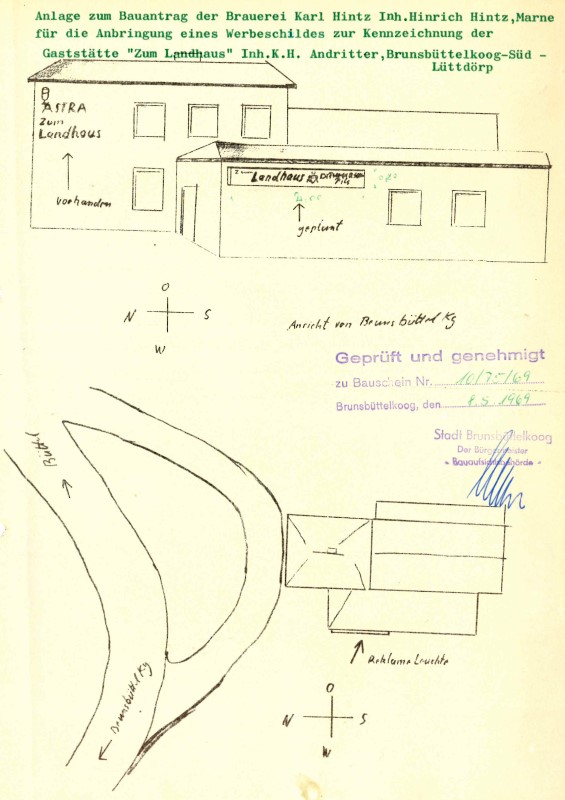 Anlage zum Bauantrag der Brauerei Karl Hintz Inh.Hinrich Hintz,Marne
für die Anbringung eines Werbeschildes zur Kennzeichnung der
Gaststätte "Zum Landhaus" Inh.K.H. Andritter,Brunsbüttelkoog-Süd -
Lüttdörp
ASTRA
Zum
Landhaus
vorhanden
Zum
Landhaus
Pils
geplant
O
N S
W
Ansicht von Brunsbüttel Kg
Geprüft und genehmigt
zu Bauschein Nr. 10/75/69
Brunsbüttelkoog, den 8.5.1969
Stadt Brunsbüttelkoog
Der Bürgermeister
- Bauaufsichtsbehörde -
Büttel
Brunsbüttel Kg
Reklame Leuchte
O
N S
W